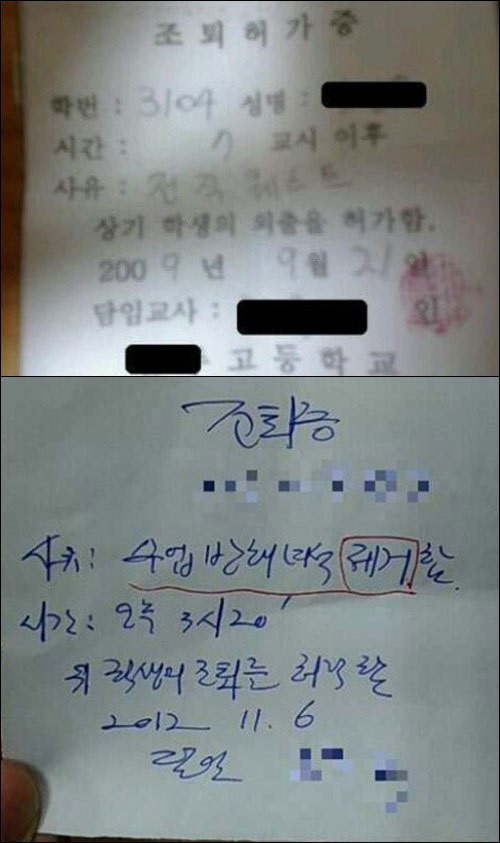 조퇴허가증
학번 : 3104 성명 :
시간 : 7 교시 이후
사유 : 전직 퀘스트
상기 학생의 외출을 허가함.
2009 년 9월 21일
담임교사 : 인
고등학교
조퇴증
사유: 수업 방해 녀석 제거 함.
시간: 오후 3시20'
위 학생의 조퇴를 허락함
2012 11. 6
담임